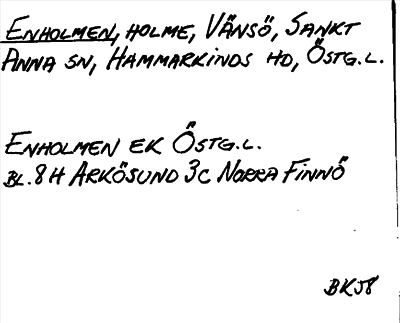 ENHOLMEN, HOLME, VÄNSÖ, SANKT
ANNA SN, HAMMARKINDS HD, ÖSTG.L.
ENHOLMEN EK ÖSTG.L.
BL. 8H ARKÖSUND 3C NORRA FINNÖ
BKJ8